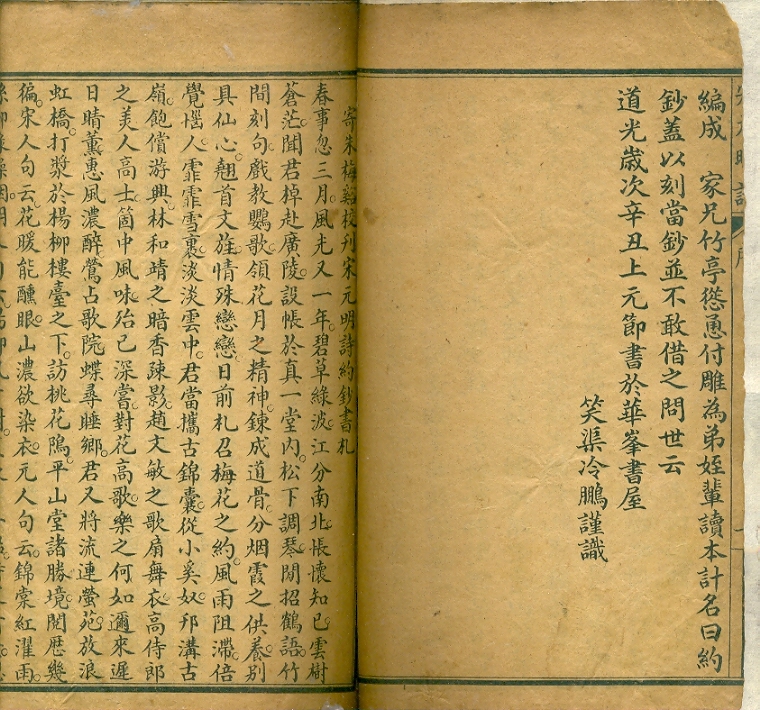 編成　家兄竹亭慫恿付雕為弟姪輩讀本計名曰約
鈔蓋以刻當鈔並不敢借之問世云
道光歲次辛丑上元節書於華峯書屋
笑渠冷鵬謹識
寄朱梅谿校刊宋元明詩約鈔書札
春事忽三月風光又一年碧草綠波江分南北悵懷知已雲樹
蒼茫聞君棹赴廣陵設帳於真一堂內松下調琴閒招鶴語竹
間刻句戲教鸚歌領花月之精神鍊成道骨分烟霞之供養別
具仙心翹首文旌情殊戀戀日前札召梅花之約風雨阻滯倍
覺惱人霏霏雪裏淡淡雲中君當攜古錦囊從小奚奴邗溝古
嶺飽償游興林和靖之暗香疎影趙文敏之歌扇舞衣高侍郎
之美人高士箇中風味殆已深嘗對花高歌樂之何如邇來遲
日晴薰惠風濃醉鶯占歌院蝶尋睡鄉君又將流連螢苑放浪
虹橋打漿於楊柳樓臺之下訪桃花隝平山堂諸勝境閱歷幾
徧宋人句云花暖能醺眼山濃欲染衣元人句云錦棠紅濯雨